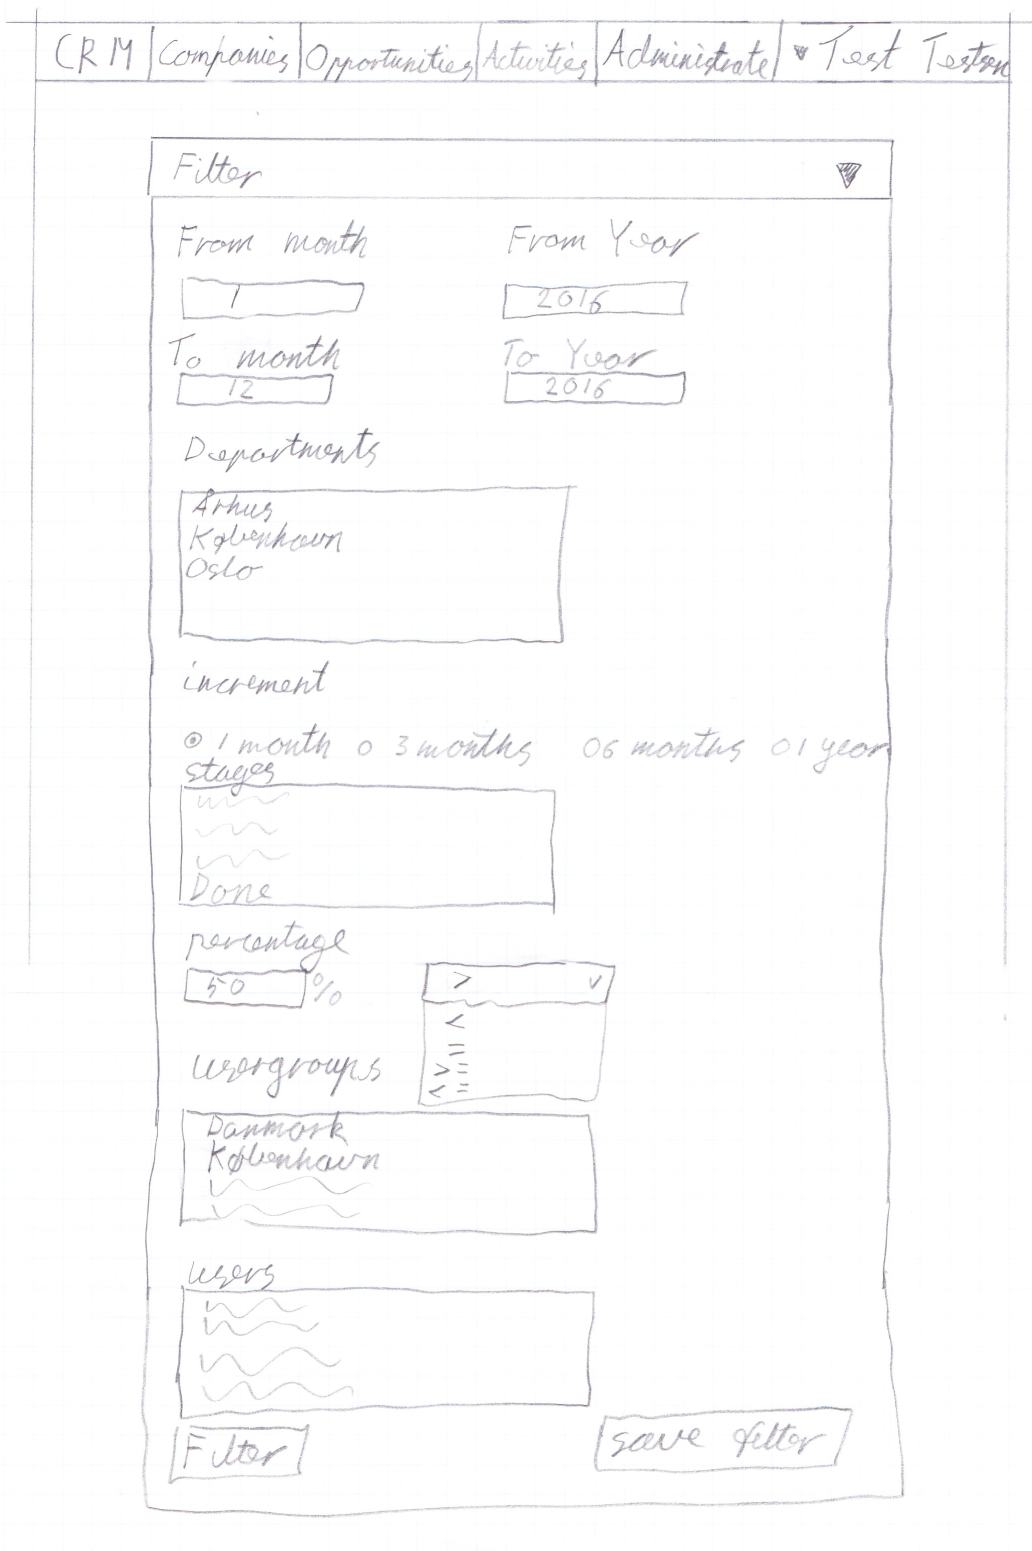 CRM Companies Opportunities Activities Administrate Test Testsen
Filter
From month From Year
1 2016
To month To Year
12 2016
Departments
Århus
København
Oslo
increment
1 month 3 months 6 months 1 year
stages
Done
percentage
50 % >
<
=
usergroups >=
<=
Danmark
København
users
Filter save filter